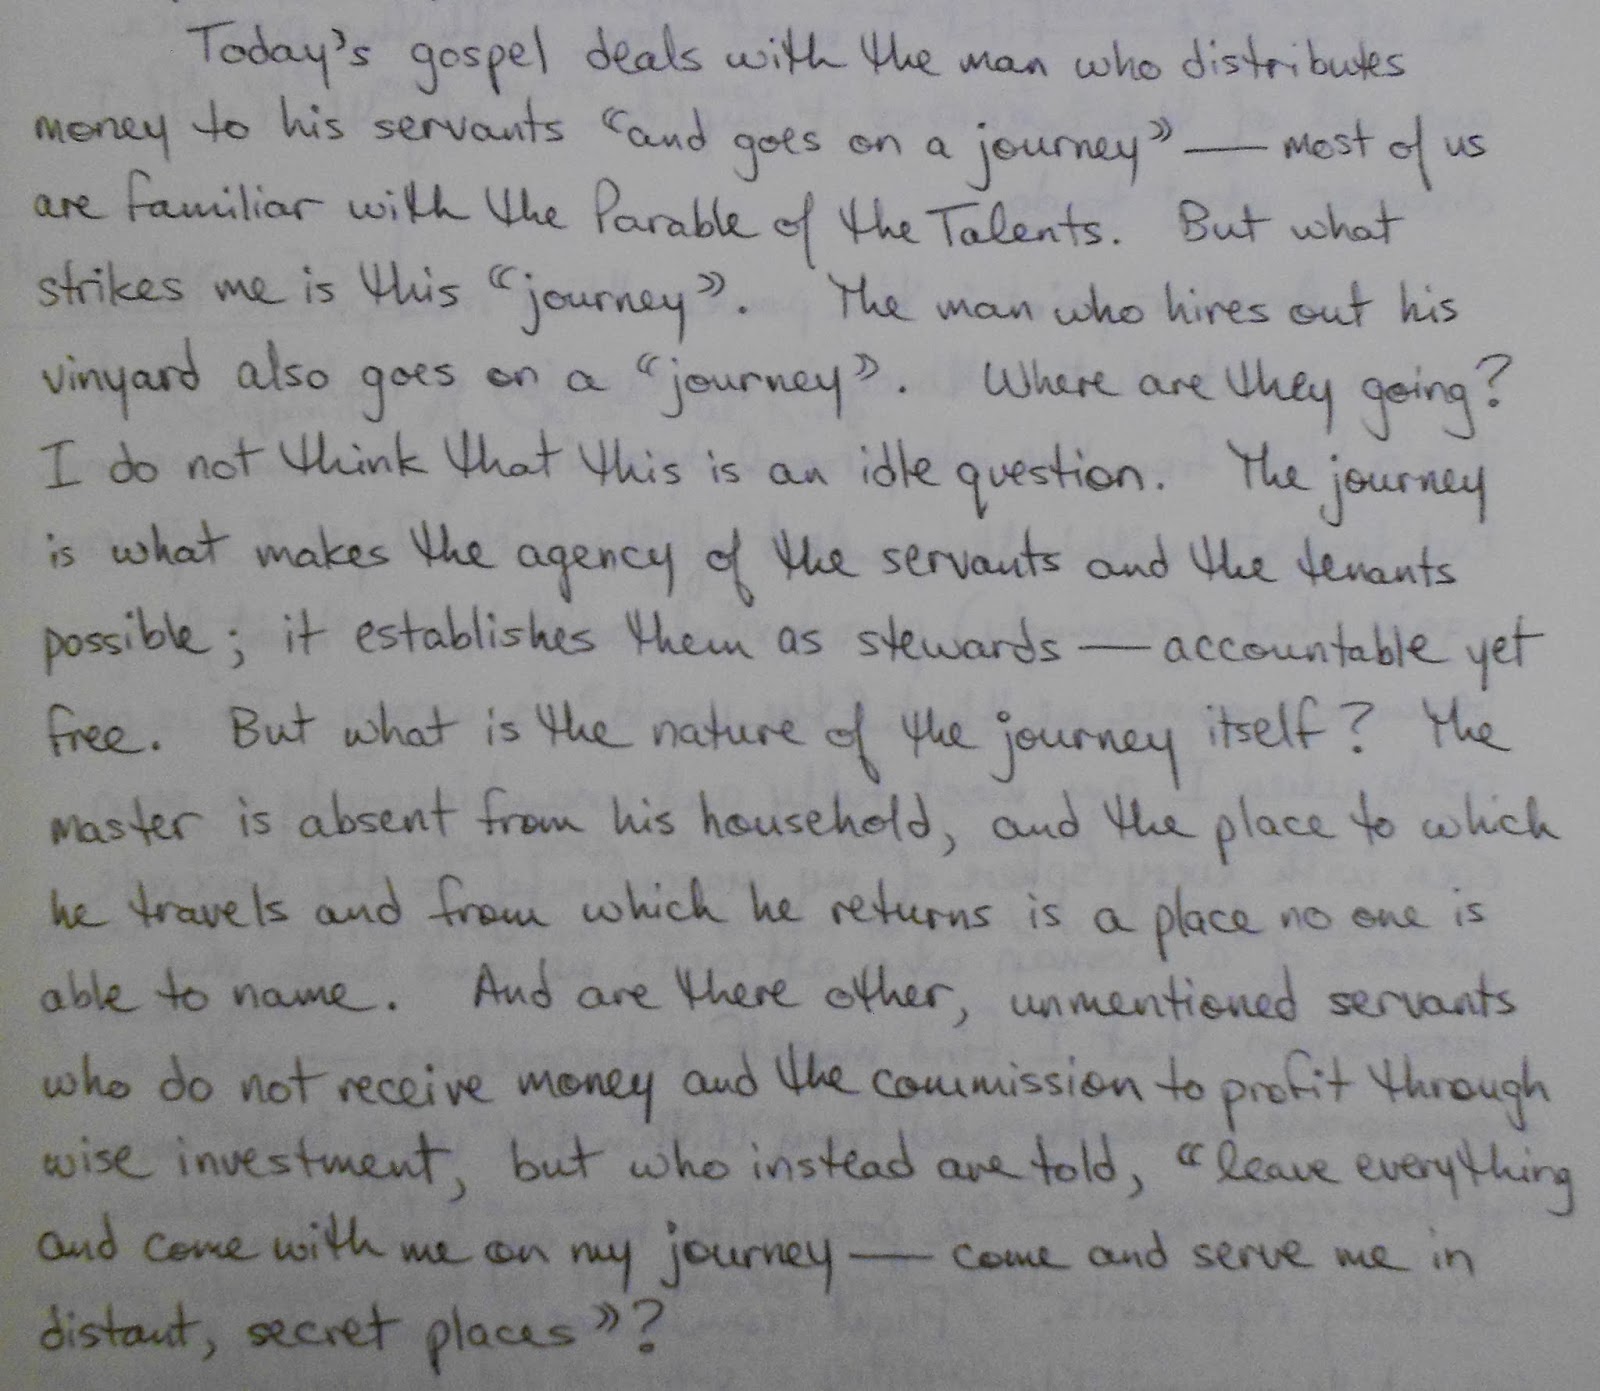 Today's gospel deals with the man who distributes
money to his servants “and goes on a journey” — most of us
are familiar with the Parable of the Talents. But what
strikes me is this “journey”. The man who hires out his
vinyard also goes on a “journey”. Where are they going?
I do not think that this is an idle question. The journey
is what makes the agency of the servants and the tenants
possible; it establishes them as stewards — accountable yet
free. But what is the nature of the journey itself? The
master is absent from his household, and the place to which
he travels and from which he returns is a place no one is
able to name. And are there other, unmentioned servants
who do not receive money and the commission to profit through
wise investment, but who instead are told, “leave everything
and come with me on my journey — come and serve me in
distant, secret places”?